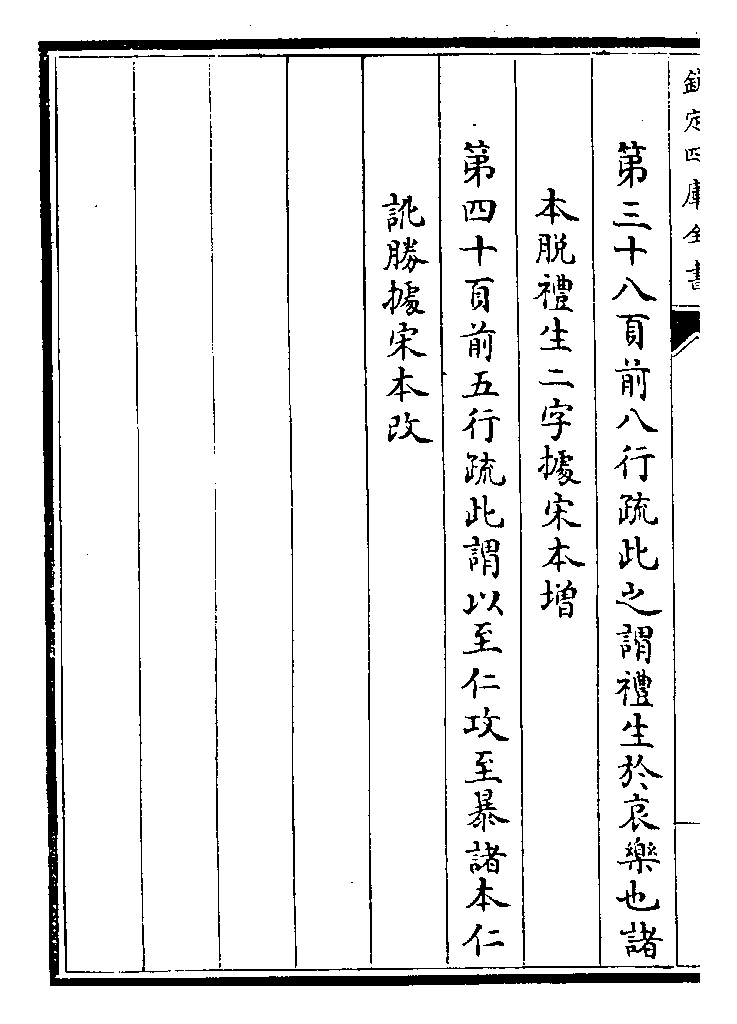 欽定四庫全書
第三十八頁前八行疏此之謂禮生於哀樂也諸
本脱禮生二字據宋本増
第四十頁前五行疏此謂以至仁攻至暴諸本仁
訛勝據宋本改